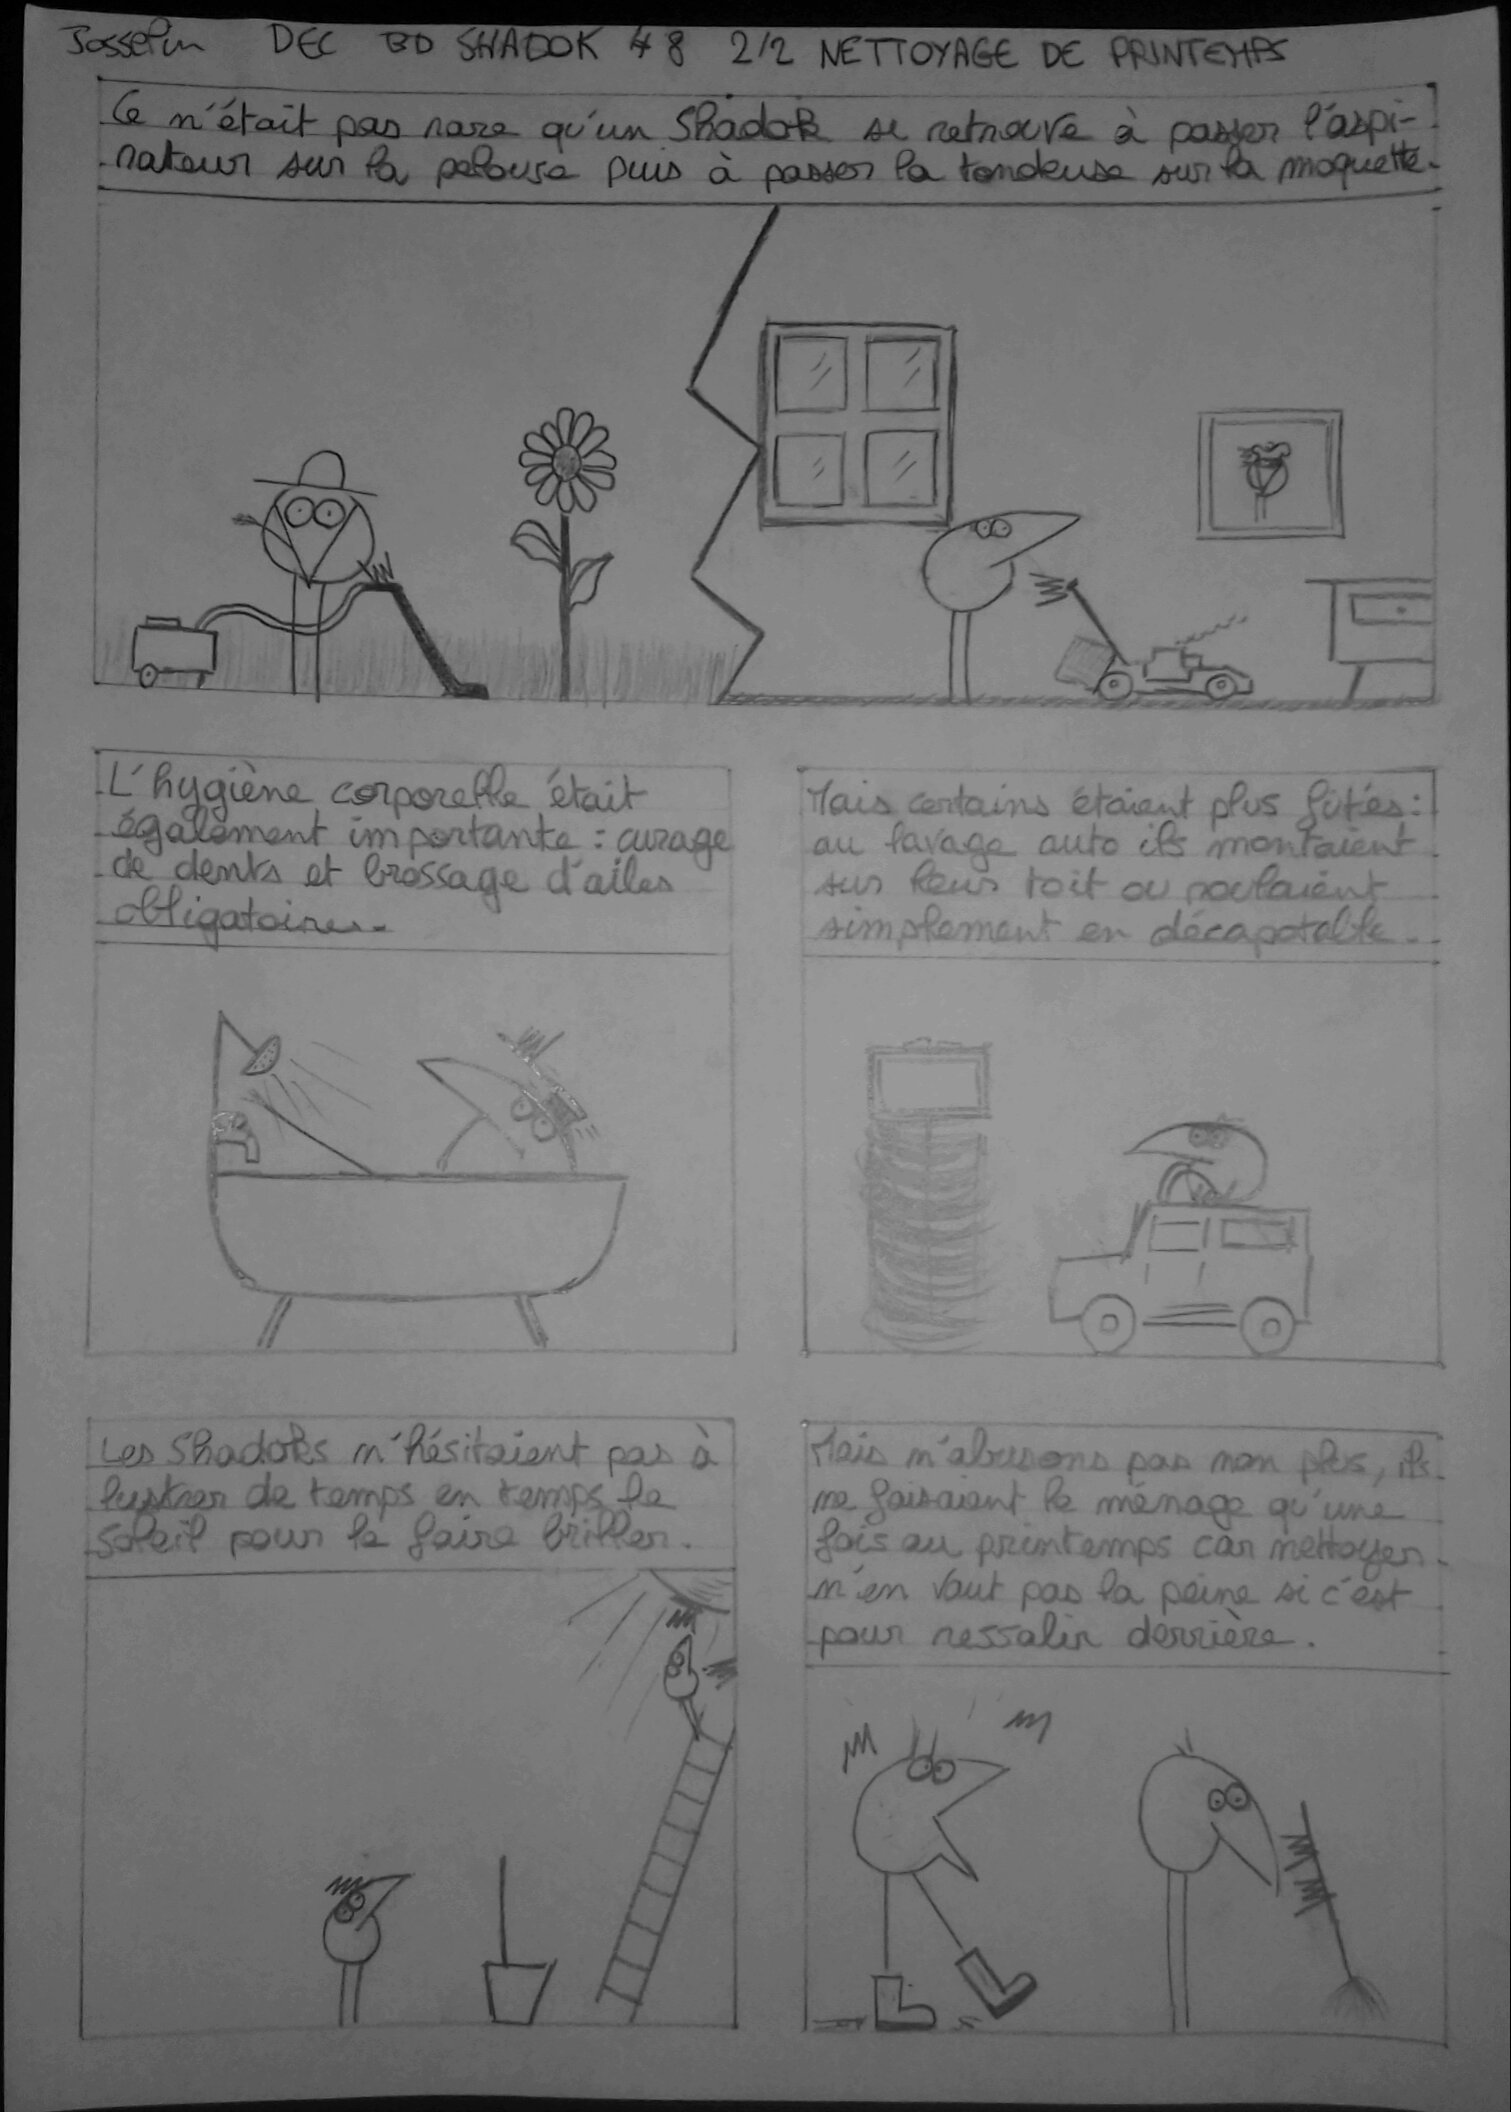 Josselin DEC BD SHADOK #8 2/2 NETTOYAGE DE PRINTEMPS
Ce n'était pas rare qu'un Shadok se retrouve à passer l'aspi-
rateur sur la pelouse puis à passer la tondeuse sur la moquette.
L'hygiène corporelle était
également importante : curage
de dents et brossage d'ailes
obligatoires.
Mais certains étaient plus futés :
au lavage auto ils montaient
sur leur toit ou roulaient
simplement en décapotable.
Les Shadoks n'hésitaient pas à
lustrer de temps en temps le
soleil pour le faire briller.
Mais n'abusons pas non plus, ils
ne faisaient le ménage qu'une
fois au printemps car nettoyer
n'en vaut pas la peine si c'est
pour ressalir derrière.